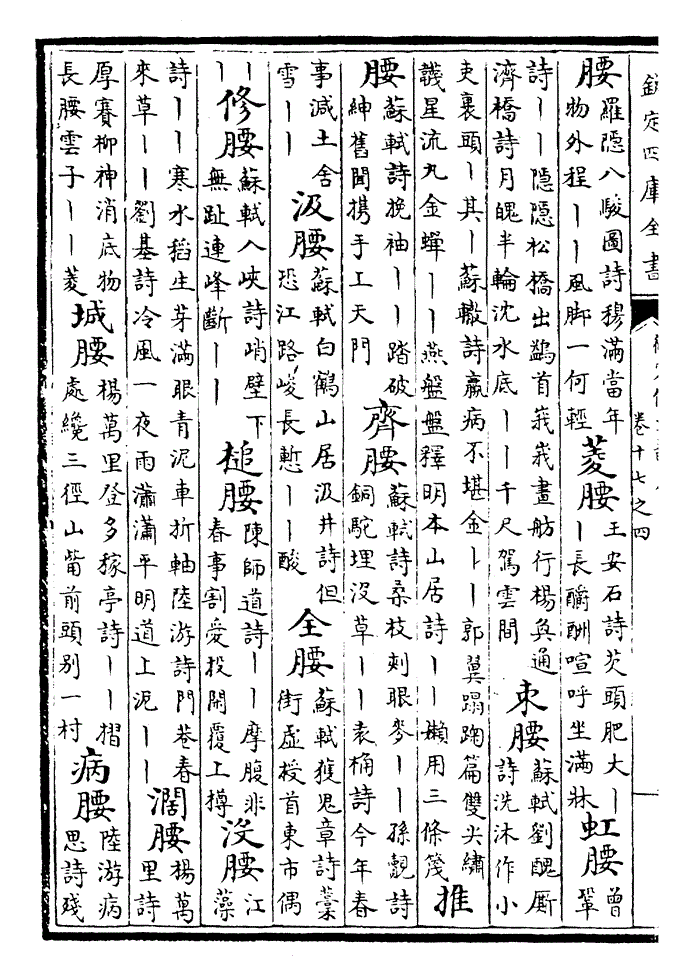 欽定四庫全書
卷十七之四
腰
羅隱八駿圖詩穆滿當年
物外程｜｜風脚一何輕
菱腰
王安石詩芡頭肥大｜
｜長釂酬喧呼坐滿牀
虹腰
曾
鞏
詩｜｜隱隱松橋出鷁首峩峩畫舫行楊奐通
濟橋詩月魄半輪沈水底｜｜千尺駕雲間
束腰
蘇軾劉醜厮
詩洗沐作小
吏裹頭｜其｜蘇轍詩羸病不堪金｜｜郭翼蹋踘篇雙头繡
韈星流九金蟬｜｜燕盤盤釋明本山居詩｜｜嬾用三條篾
推
腰
蘇軾詩挽袖｜｜踏破
紳舊聞携手工天門
齊腰
蘇軾詩桑枝刺眼麥｜｜孫覿詩
銅駝埋没草｜｜袁桷詩今年春
事減土舍
雪｜｜
汲腰
蘇軾白鶴山居汲井詩但
恐江路峻長慙｜｜酸
全腰
蘇軾獲鬼章詩藁
街虛授首東市偶
｜｜
修腰
蘇軾入峽詩峭壁下
無趾連峰斷｜｜
槌腰
陳師道詩｜｜摩腹非
春事割愛投閒覆上樽
没腰
江
藻
詩｜｜寒水稻生芽滿眼青泥車折軸陸游詩門巷春
來草｜｜劉基詩冷風一夜雨瀟瀟平明道上泥｜｜
濶腰
楊萬
里詩
厚賽柳神消底物
長腰雲子｜｜菱
城腰
楊萬里登多稼亭詩｜｜摺
處纔三徑山觜前頭别一村
病腰
陸游病
思詩殘